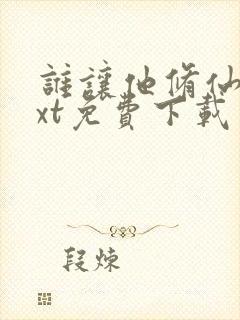 誰讓他脩仙
xt免費下載
段煉